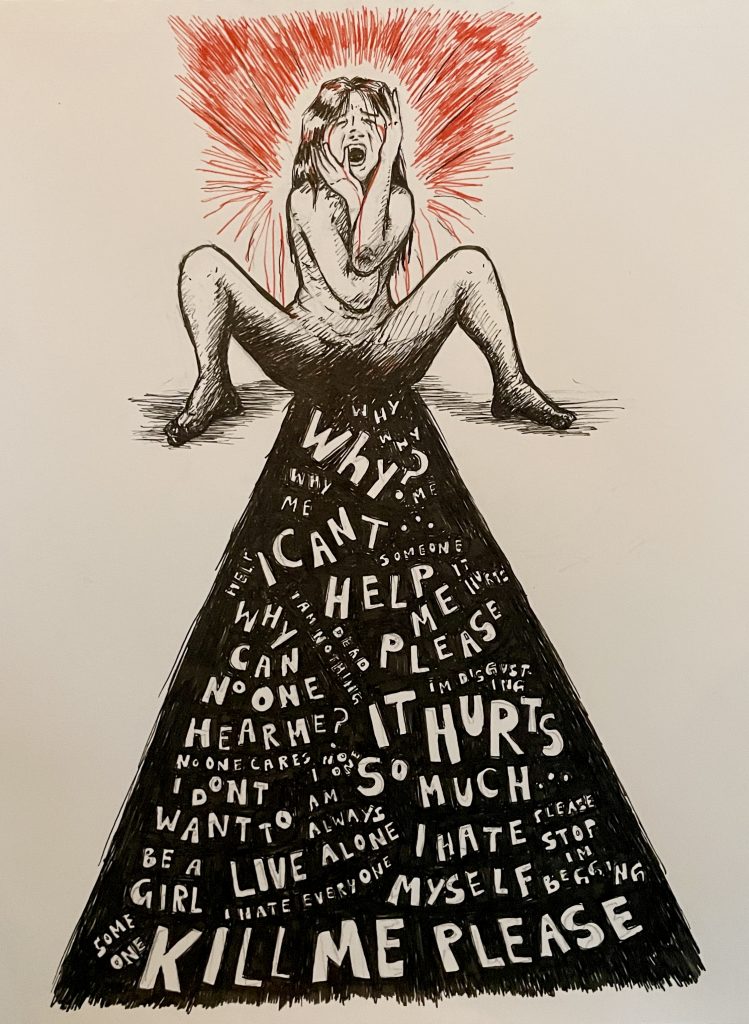 WHY
WHY
WHY?
WHY
ME
ME
I CANT...
SOMEONE
HELP
HELP
ME
PLEASE
IT
HURTS
WHY
CAN
NO ONE
HEAR ME?
I AM NOTHING
DEAD
IM DISGUST-
ING
IT HURTS
SO
MUCH...
NO ONE CARES
NO
ONE
I DONT
WANT TO
BE A
GIRL
I
AM
ALWAYS
ALONE
LIVE
I HATE
MYSELF
PLEASE
STOP
IM
BEGGING
I HATE EVERYONE
SOME
ONE
KILL ME PLEASE